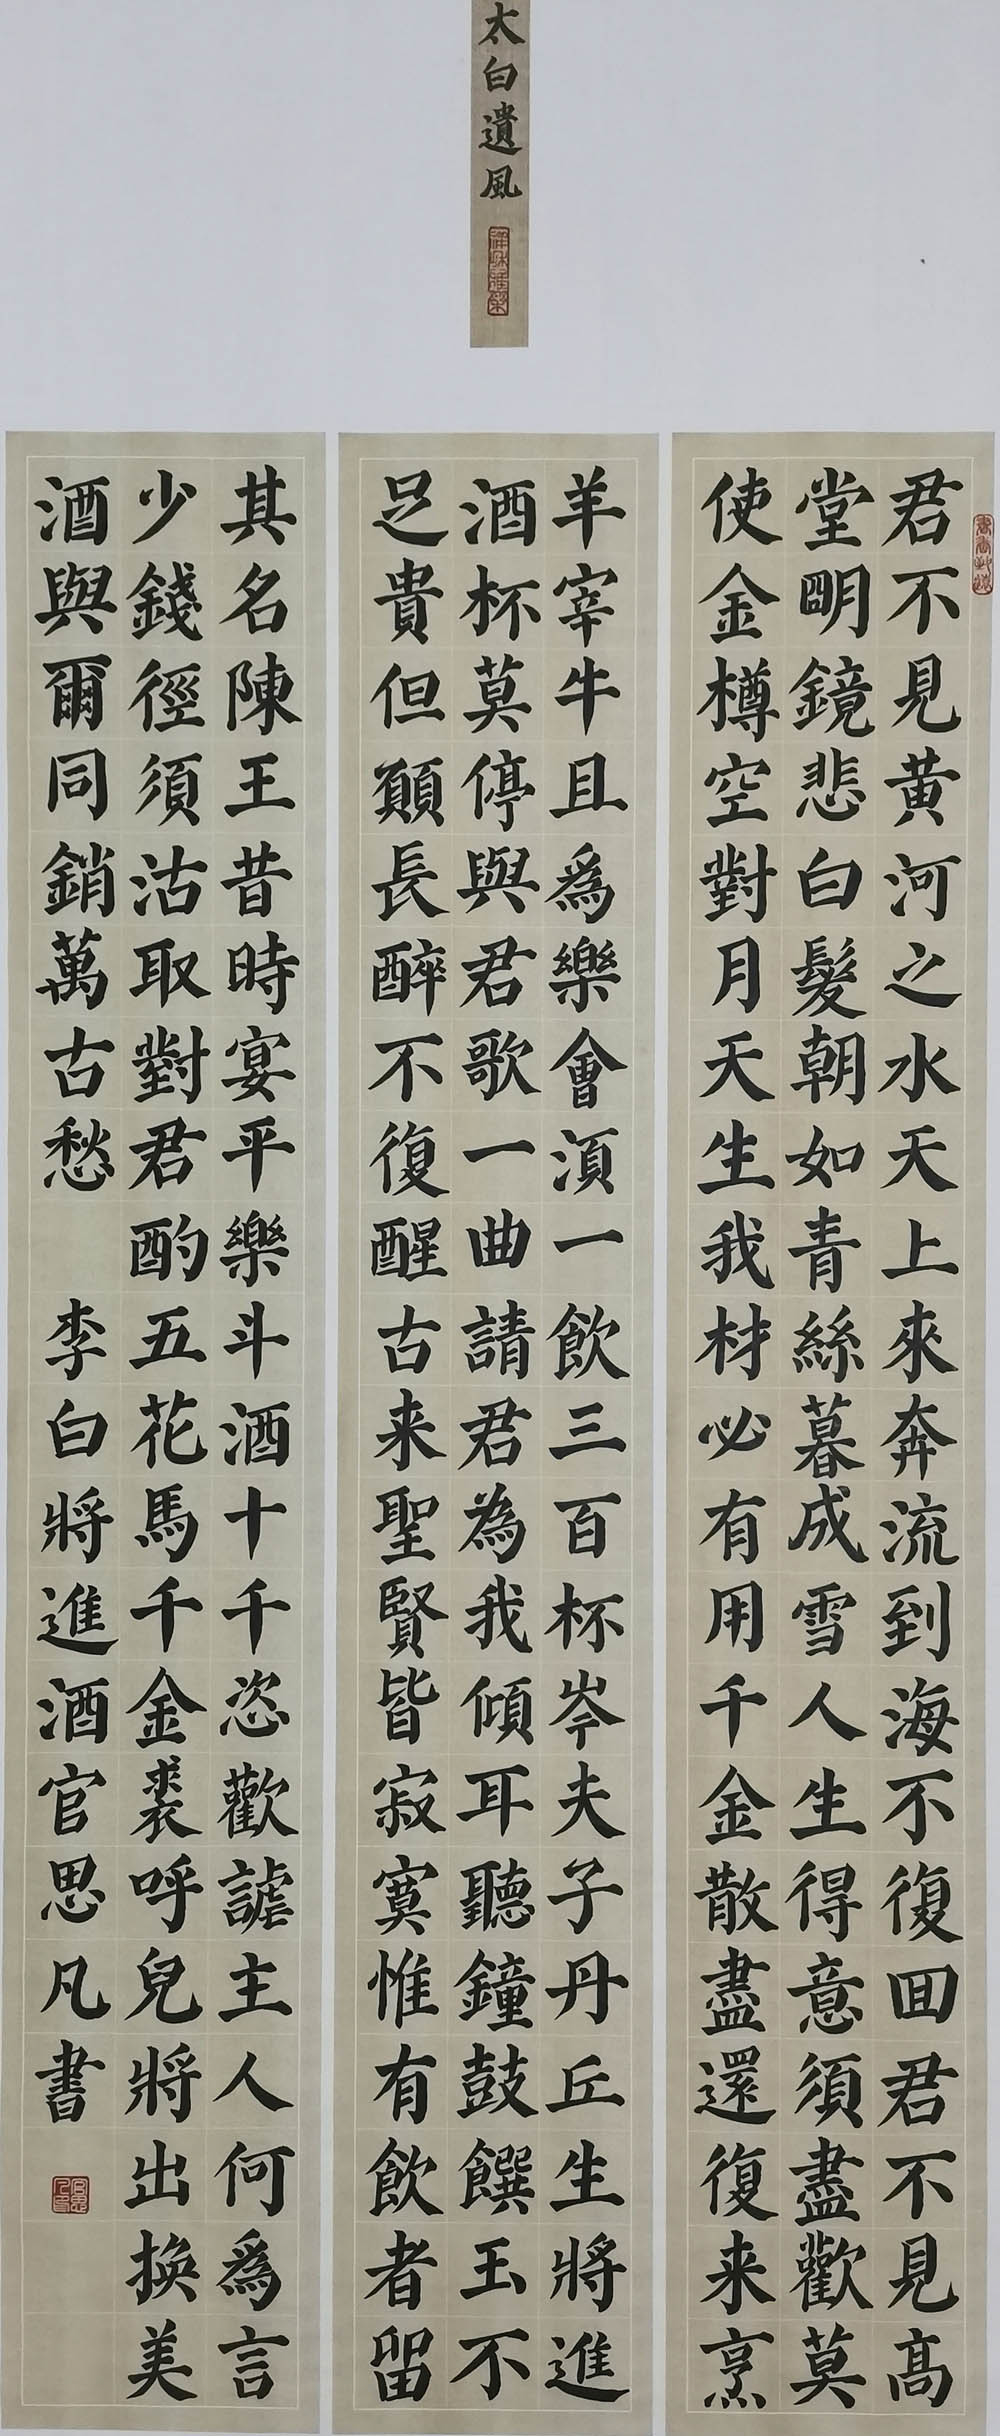 太白遺風
君不見黃河之水天上來奔流到海不復回君不見高
堂明鏡悲白髮朝如青絲暮成雪人生得意須盡歡莫
使金樽空對月天生我材必有用千金散盡還復来烹
羊宰牛且爲樂會須一飲三百杯岑夫子丹丘生將進
酒杯莫停與君歌一曲請君為我傾耳聽鐘鼓饌玉不
足貴但願長醉不復醒古来聖賢皆寂寞惟有飲者留
其名陳王昔時宴平樂斗酒十千恣歡謔主人何爲言
少錢徑須沽取對君酌五花馬千金裘呼兒將出換美
酒與爾同銷萬古愁 李白將進酒官思凡書